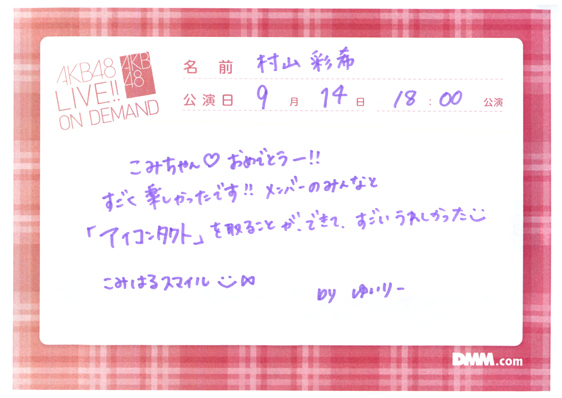 AKB48
LIVE!!
ON DEMAND
AKB
48
名前 村山彩希
公演日 9月14日 18:00 公演
こみちゃん♡おめでとうー!!
すごく楽しかったです!! メンバーのみんなと
「アイコンタクト」を取ることが、できて、すごいうれしかった
こみはるスマイル
by ゆいりー
DMM.com